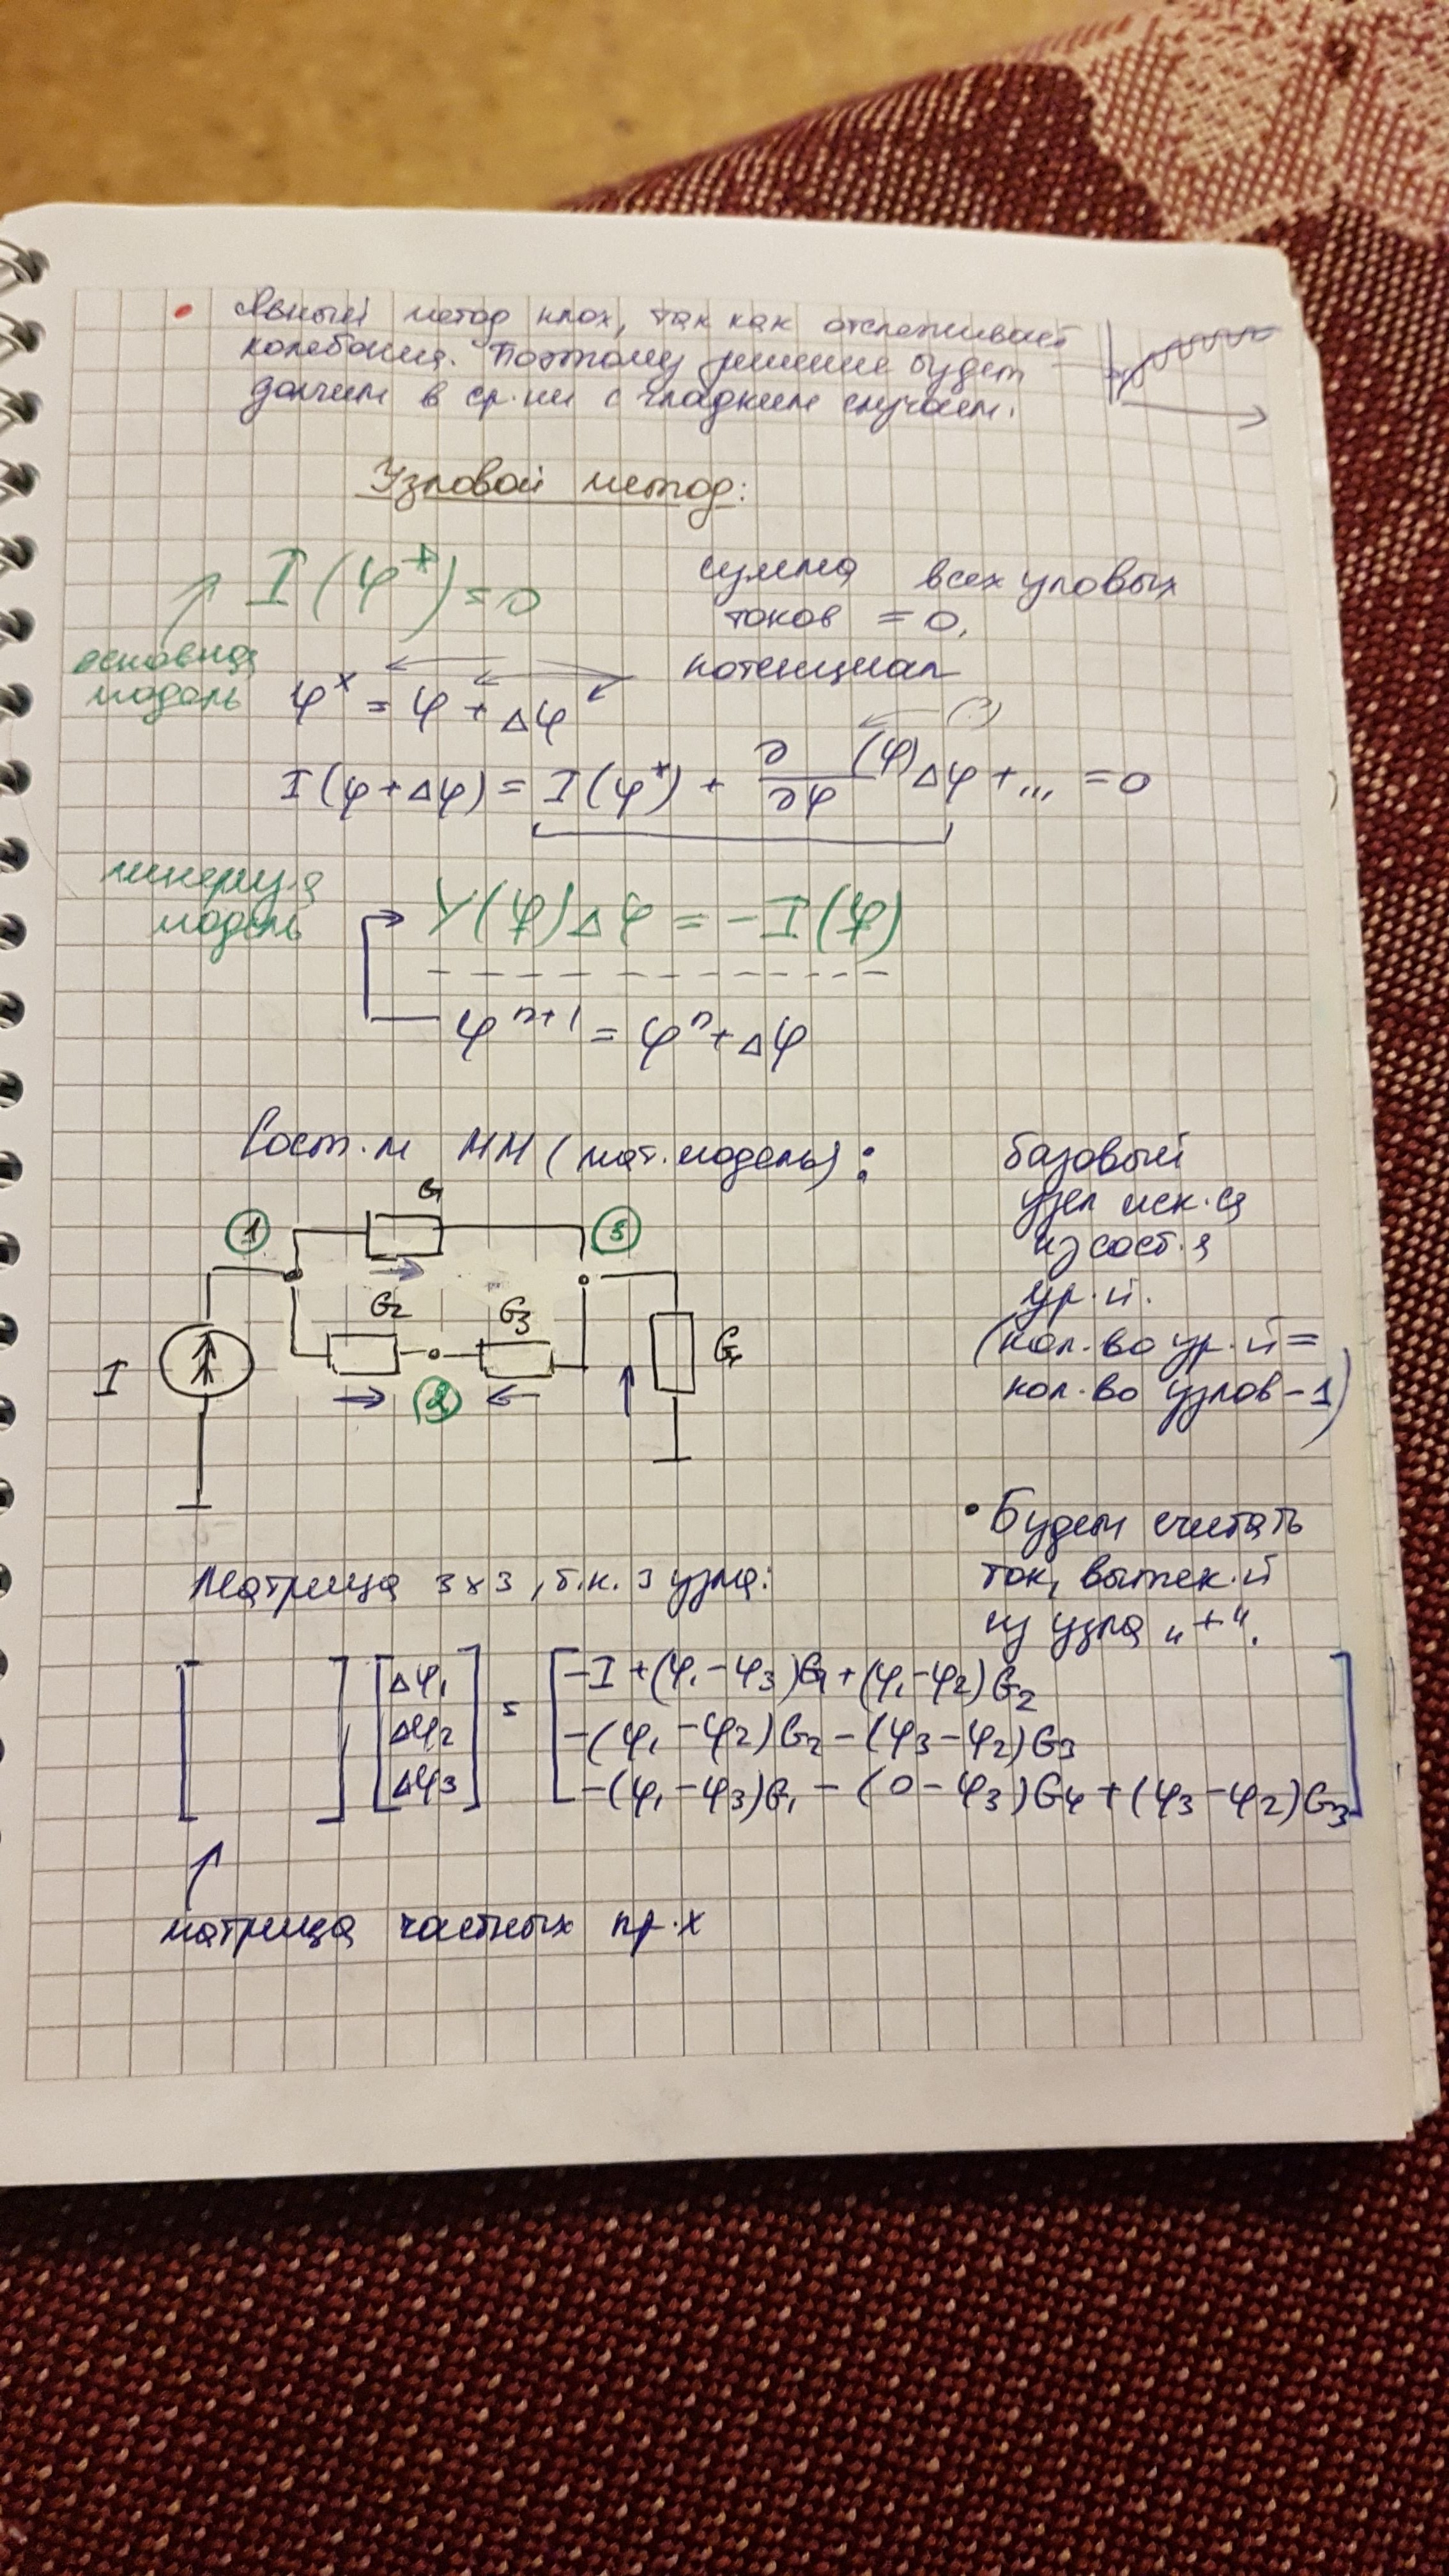 Явный метод плох, так как отслеживает
колебания. Поэтому решение будет
долгим в ср.ии с гладким случаем.
Узловой метод:
I(φ*)=0
сумма всех уловых
токов = 0.
основная
модель
потенциал
φˣ = φ + Δφ
(·)
I(φ+Δφ) = I(φ*) + ∂(φ)/∂φ Δφ + ... = 0
модель
Y(φ)Δφ = -I(φ)
φⁿ⁺¹ = φⁿ + Δφ
Сост.м ММ (мат. модель):
базовый
узел иск.ся
из сост.я
ур.й.
(кол.во ур.й =
кол.во узлов - 1)
G1
1
3
G2
G3
I
G4
2
• Будем считать
ток, вытек.й
из узла „+“.
Матрица 3x3, т.к. 3 узла:
[ ] [Δφ₁] = [-I + (φ₁-φ₃)G₁ + (φ₁-φ₂)G₂
Δφ₂ -(φ₁-φ₂)G₂ - (φ₃-φ₂)G₃
Δφ₃ -(φ₁-φ₃)G₁ - (0-φ₃)G₄ + (φ₃-φ₂)G₃]
матрица частных пр.х